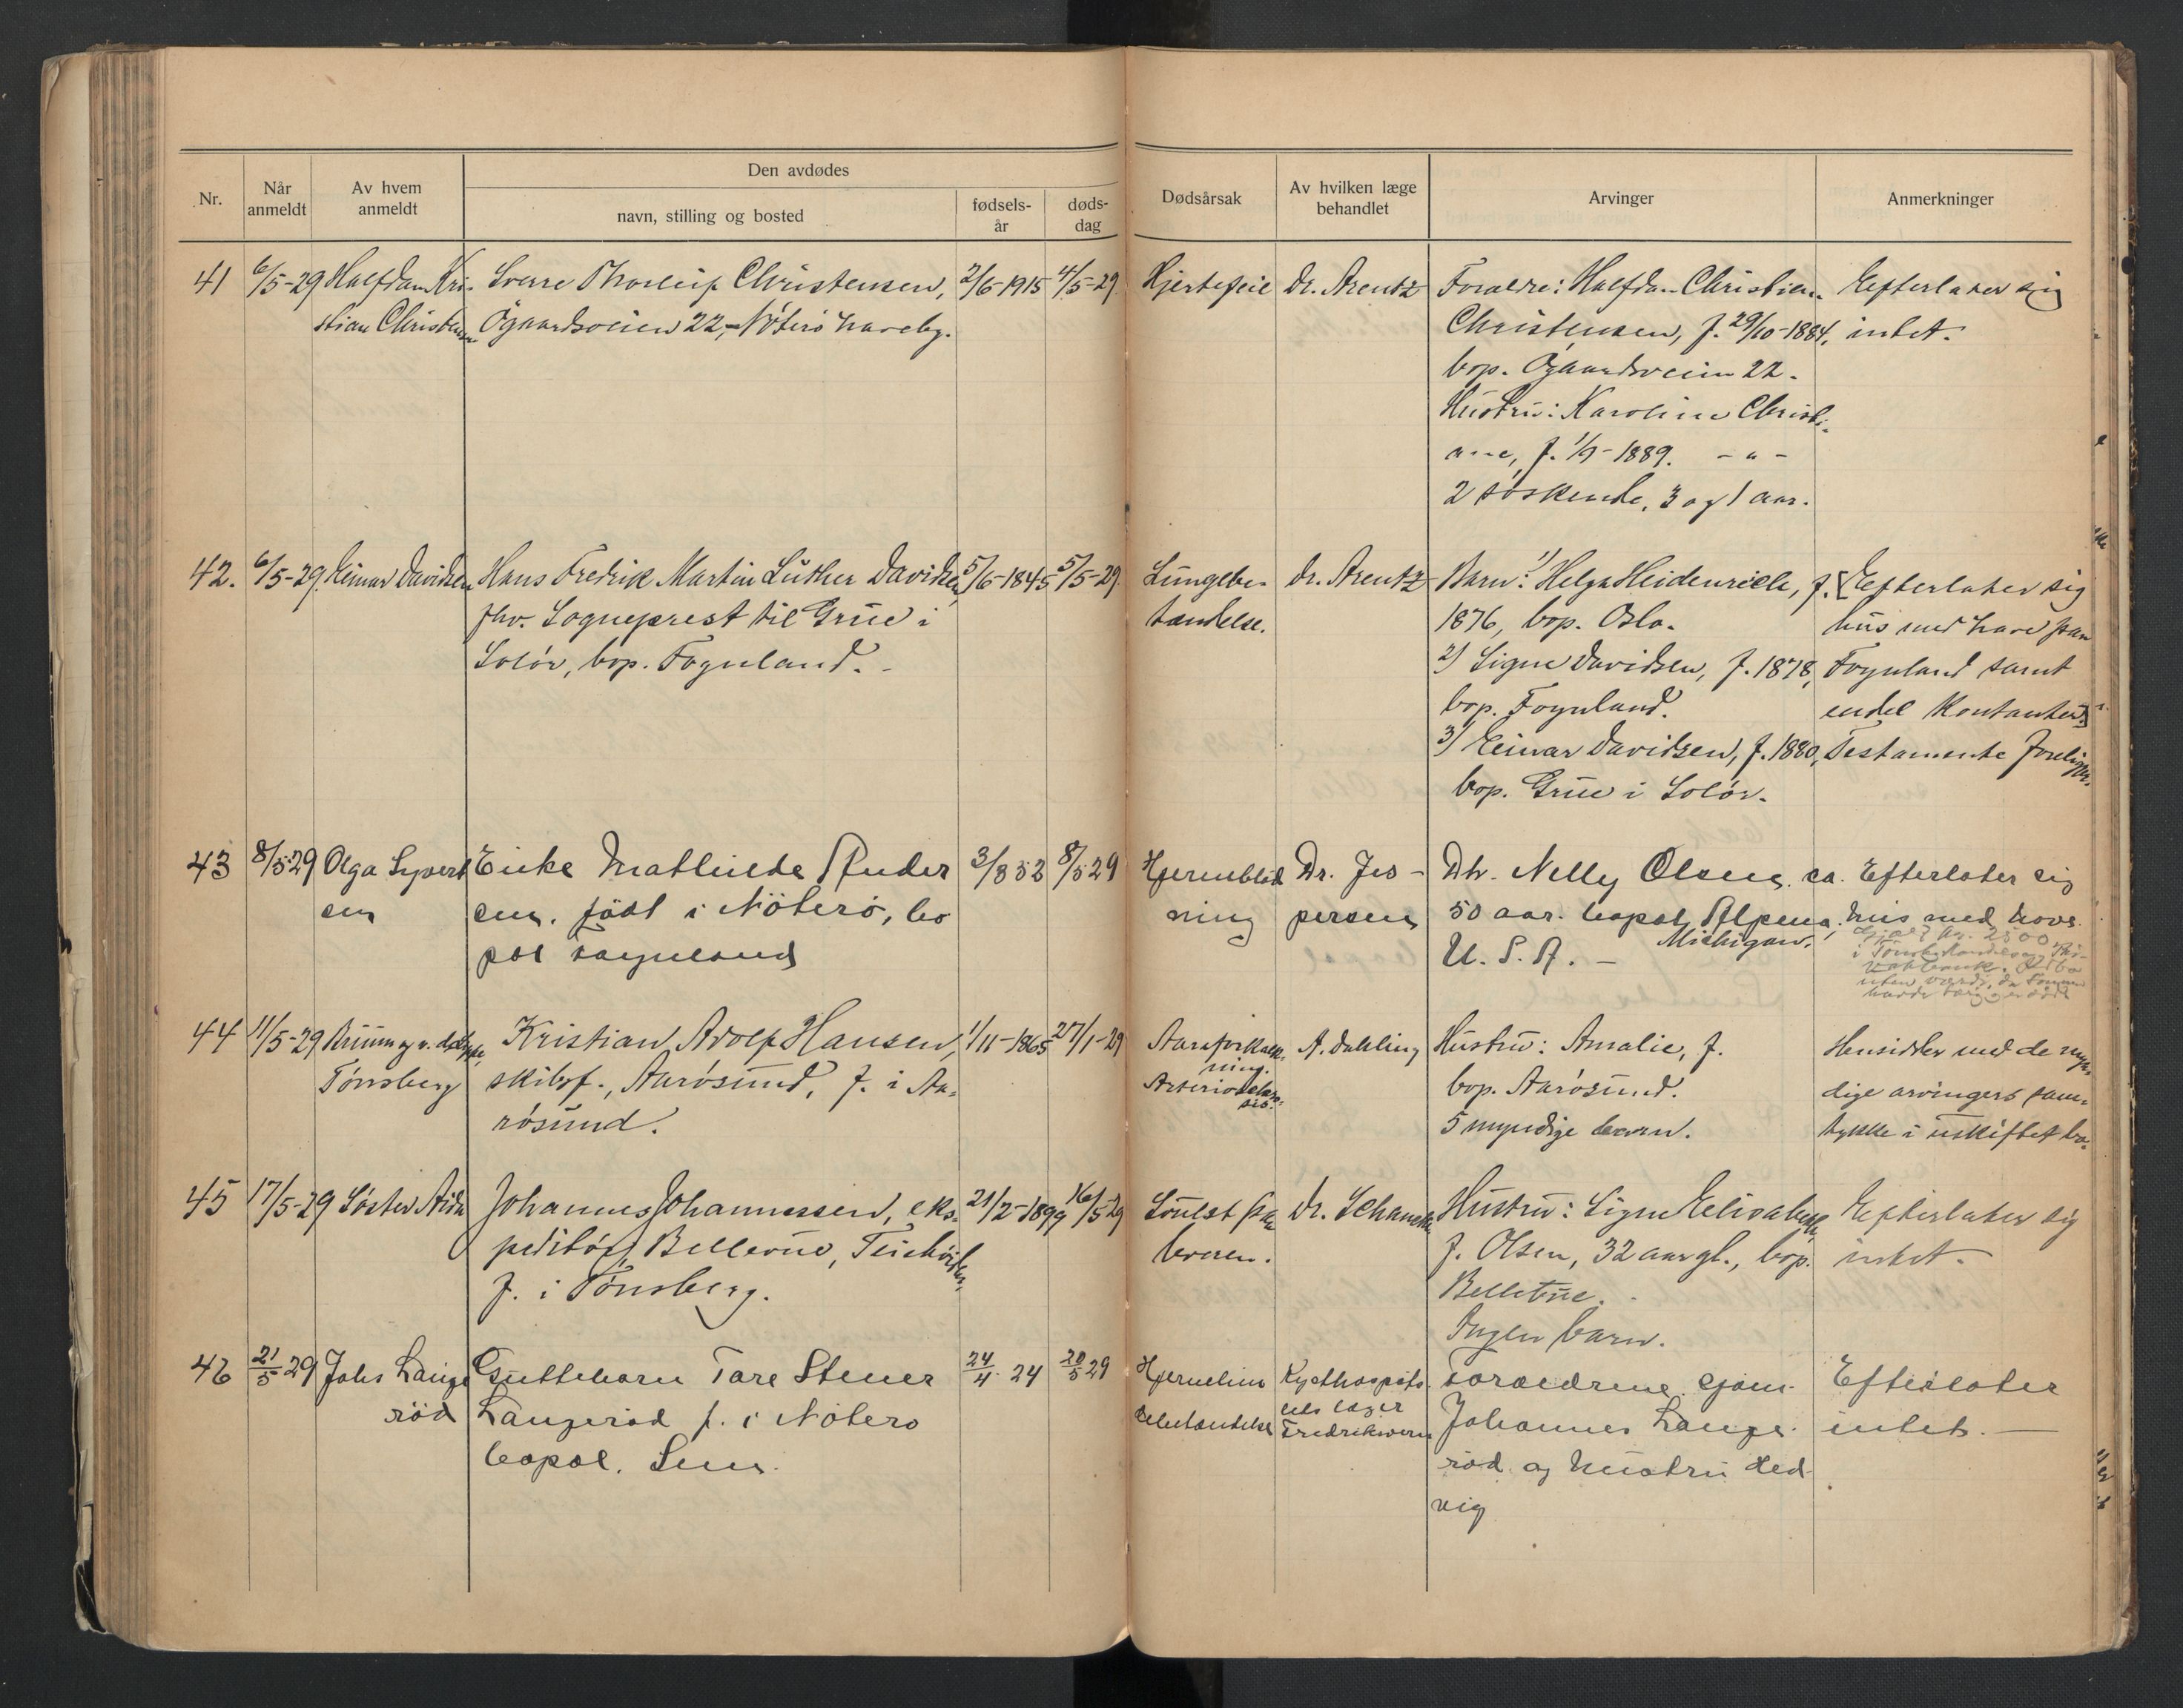 Nr.
Når
anmeldt
Av hvem
anmeldt
Den avdødes
navn, stilling og bosted
fødsels-
år
døds-
dag
Dødsårsak
Av hvilken læge
behandlet
Arvinger
Anmerkninger
41
6/5-29
Halfdan Kri-
stian Christensen
Sverre Thorleif Christensen,
Øgaardsveien 22, Nøterø haveby.
2/6-1915
4/5-29.
Hjertefeil
Dr. Arentz
Foraldre: Halfdan Christian
Christensen, f. 29/10-1884,
bop. Øgaardsveien 22.
Hustru: Karoline Christi-
ane, f. 1/9-1889. - " -
2 søskende, 3 og 1 aar.
Efterlater sig
intet.
42.
6/5-29.
Einar Davidsen
Hans Fredrik Martin Luther Davidsen,
fhv. Sogneprest til Grue i
Solør, bop. Fognland. -
5/6-1845
5/5-29.
Lungebe-
tændelse.
Dr. Arentz
Barn: 1) Helga Heidenreich, f.
1876, bop. Oslo.
2) Signe Davidsen, f. 1878,
bop. Fognland.
3) Einar Davidsen, f. 1880,
bop. Grue i Solør.
[Efterlater sig
hus med have paa
Foynland samt
endel Kontanter.]
Testamente foreligger.
43
8/5 29
Olga Syvert
sen
Enke Mathilde Ander
sen. født i Nøterø, bo
pæl Føynland
3/8 52
8/5 29
Hjerneblød
ning
Dr. Jes-
persen
Dtr. Nelly Olsen. ca.
50 aar. bopæl Alpena,
Michigan,
U. S. A. -
Efterlater sig
hus med have.
Gjæld kr. 2500
i Tønsberg Handels og Pri-
vatbank.
44
11/5-29
Tønsberg
Kristian Adolf Hansen,
skibsf., Aarøsund, f. i Aa-
røsund.
1/11-1865
27/1-29
Aareforkalk-
ning.
Arteriosclero-
sis.
A. Dahling
Hustru: Amalie, f.
bop. Aarøsund.
5 myndige barn.
Hensidder med de myn-
dige arvingers sam-
tykke i uskiftet bo.
45
17/5-29
Søster Aida
Johannes Johannessen, eks-
peditør, Bellevue, Teiehøiden,
f. i Tønsberg.
21/2-1899
16/5-29
Svulst paa
leveren.
Dr. Schanche
Hustru: Signe Elisabeth
f. Olsen, 32 aar gl., bop.
Bellevue.
Ingen barn.
Efterlater sig
intet.
46
21/5 29
Johs Lange
rød
Guttebarn Tore Stener
Langerød f. i Nøterø
bopæl. Sem.
24/4. 24
20/5 29
Hjernehinde
betændelse
Kysthospita
lets læger
Fredriksvern
Forældrene. Gjørn.
Johannes Lange
rød og hustru Hed
vig
Efterlater
intet. -